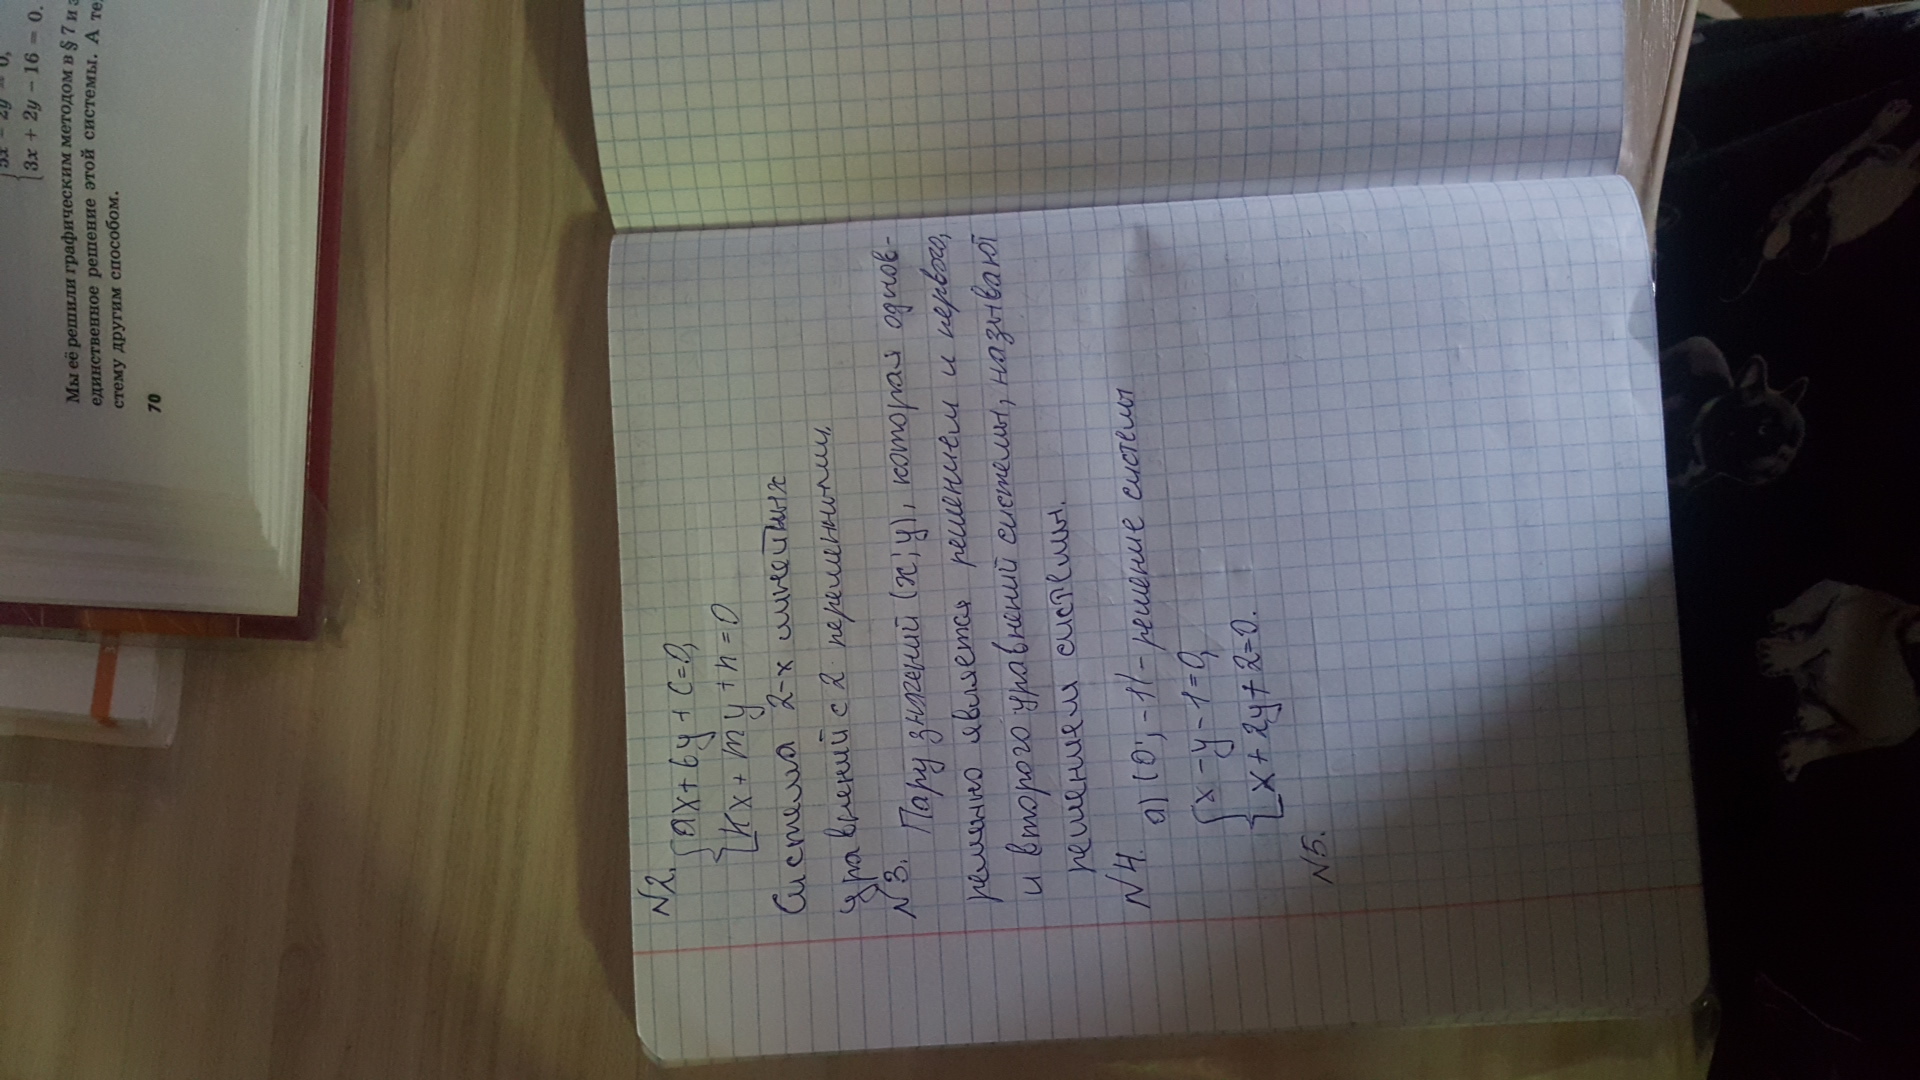 5x − 2y = 0,
3x + 2y − 16 = 0.
Мы её решили графическим методом в § 7 и
единственное решение этой системы. А
стему другим способом.
70
№2. ax + by + c = 0,
kx + my + n = 0
Система 2-х линейных
уравнений с 2 переменными.
№3. Пару значений (x; y), которая однов-
ременно является решением и первого,
и второго уравнений системы, называют
решением системы.
№4. а) (0; -1) - решение системы
x - y - 1 = 0,
x + 2y + 2 = 0.
№5.